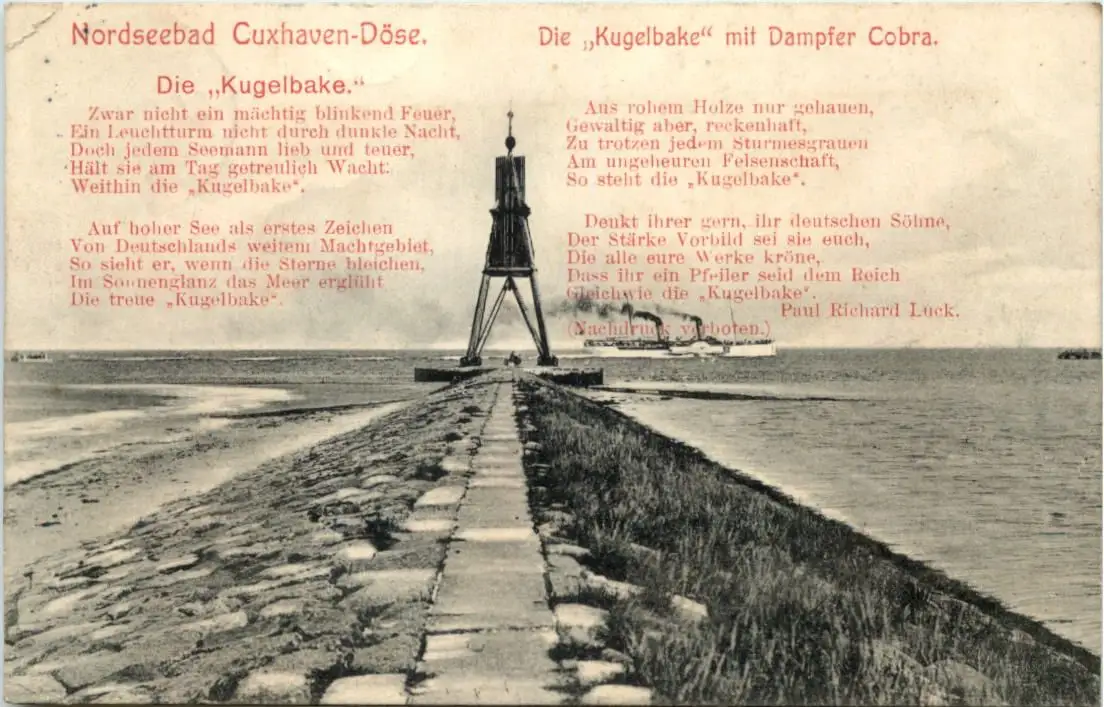 Nordseebad Cuxhaven-Döse.
Die „Kugelbake“ mit Dampfer Cobra.
Die „Kugelbake.“
Zwar nicht ein mächtig blinkend Feuer,
Ein Leuchtturm nicht durch dunkle Nacht,
Doch jedem Seemann lieb und teuer,
Hält sie am Tag getreulich Wacht:
Weithin die „Kugelbake“.
Auf hoher See als erstes Zeichen
Von Deutschlands weitem Machtgebiet,
So sieht er, wenn die Sterne bleichen,
Im Sonnenglanz das Meer erglüht
Die treue „Kugelbake“.
Aus rohem Holze nur gehauen,
Gewaltig aber, reckenhaft,
Zu trotzen jedem Sturmesgrauen
Am ungeheuren Felsenschaft,
So steht die „Kugelbake“.
Denkt ihrer gern, ihr deutschen Söhne,
Der Stärke Vorbild sei sie euch,
Die alle eure Werke kröne,
Dass ihr ein Pfeiler seid dem Reich
Gleichwie die „Kugelbake“.
Paul Richard Luck.
(Nachdruck verboten.)